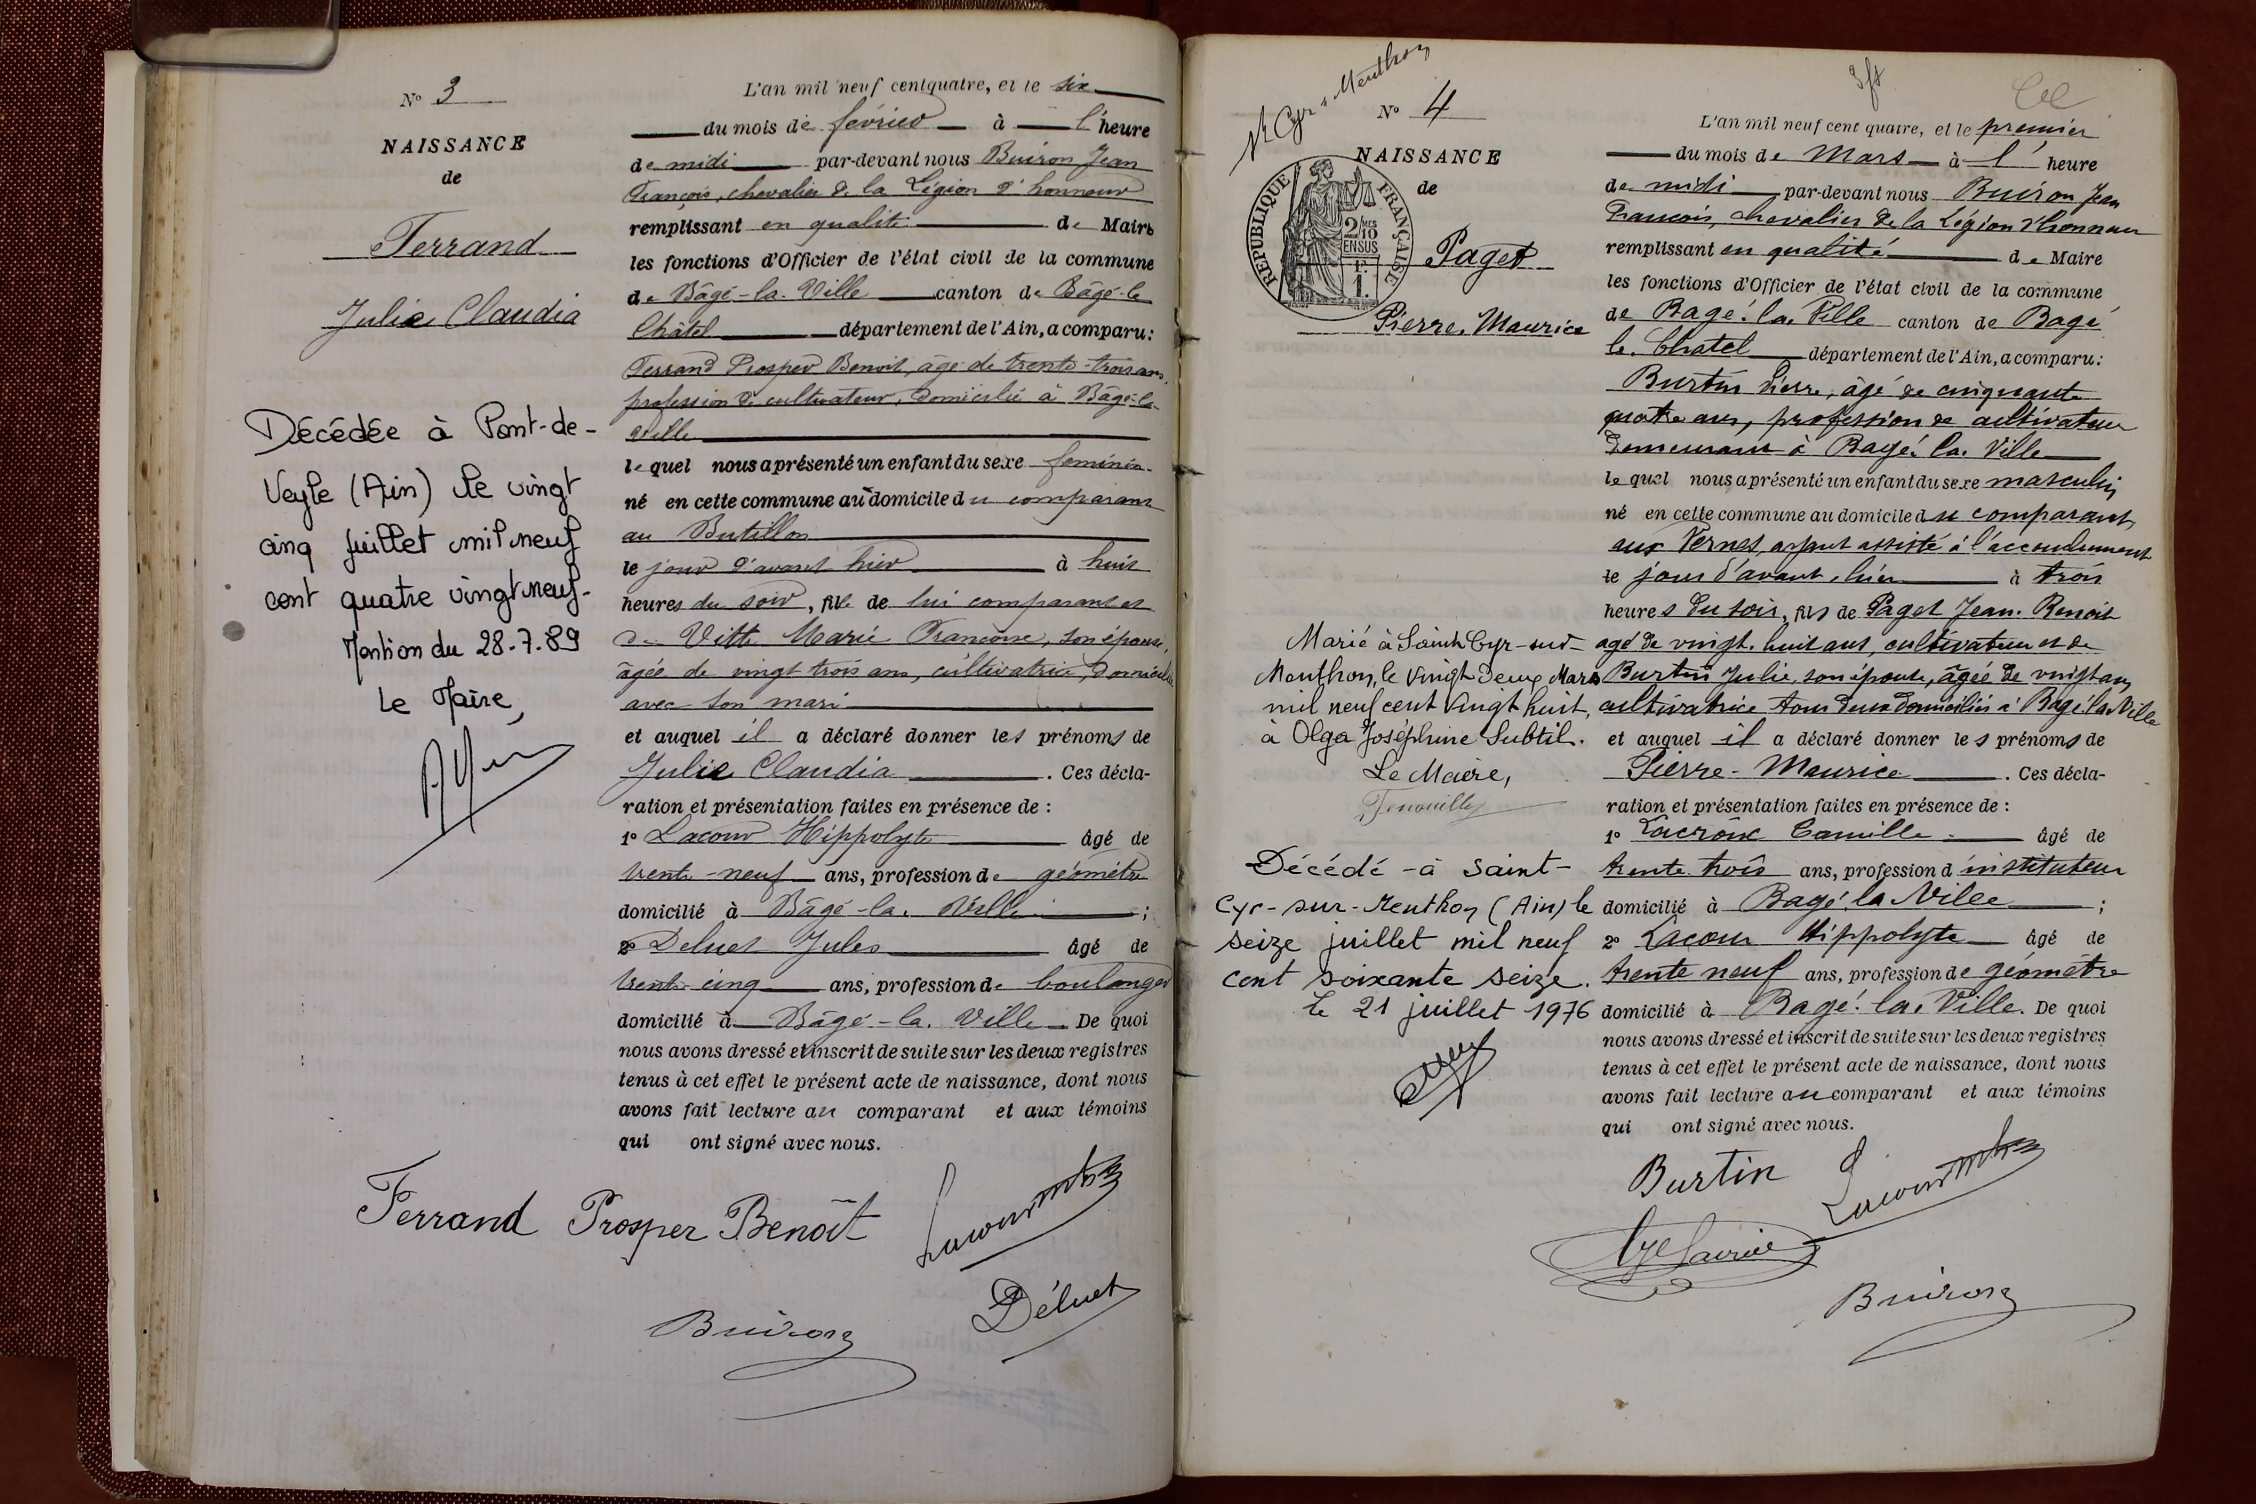 N° 3
NAISSANCE
de
Ferrand
Julie Claudia
Décédée à Pont-de-
Veyle (Ain) le vingt
cinq juillet mil neuf
cent quatre vingt neuf.
Mention du 28.7.89
Le Maire,
L'an mil neuf cent quatre, et le six
du mois de février à l'heure
de midi par-devant nous Buiron Jean
François, chevalier de la Légion d'honneur
remplissant en qualité de Maire
les fonctions d'Officier de l'état civil de la commune
de Bâgé-la-Ville canton de Bâgé-le
Châtel département de l'Ain, a comparu:
Ferrand Prosper Benoit, âgé de trente-trois ans,
profession de cultivateur, domicilié à Bâgé-la-
Ville
lequel nous a présenté un enfant du sexe féminin
né en cette commune au domicile du comparant
au Butillon
le jour d'avant hier à huit
heures du soir, fille de lui comparant et
de Vitte Marie Françoise, son épouse,
âgée de vingt trois ans, cultivatrice, domiciliée
avec son mari
et auquel il a déclaré donner les prénoms de
Julie Claudia. Ces décla-
ration et présentation faites en présence de :
1° Lacour Hippolyte âgé de
trente-neuf ans, profession de géomètre
domicilié à Bâgé-la-Ville ;
2° Deluet Jules âgé de
trente cinq ans, profession de boulanger
domicilié à Bâgé-la-Ville De quoi
nous avons dressé et inscrit de suite sur les deux registres
tenus à cet effet le présent acte de naissance, dont nous
avons fait lecture au comparant et aux témoins
qui ont signé avec nous.
Ferrand Prosper Benoît
Lacour
Déluet
Buiron
St Cyr s Menthon
N° 4
NAISSANCE
de
REPUBLIQUE FRANÇAISE
2/10
EN SUS
1 F.
Paget
Pierre, Maurice
Marié à Saint Cyr-sur-
Menthon, le vingt deux Mars
mil neuf cent vingt huit,
à Olga Joséphine Subtil.
Le Maire,
Décédé à Saint-
Cyr-sur-Menthon (Ain) le
seize juillet mil neuf
cent soixante seize.
Le 21 juillet 1976
L'an mil neuf cent quatre, et le premier
du mois de Mars à l'heure
de midi par-devant nous Buiron Jean
François, chevalier de la Légion d'honneur
remplissant en qualité de Maire
les fonctions d'Officier de l'état civil de la commune
de Bagé-la-Ville canton de Bagé
le Chatel département de l'Ain, a comparu:
Burtin Pierre, âgé de cinquante
quatre ans, profession de cultivateur
demeurant à Bagé la Ville
lequel nous a présenté un enfant du sexe masculin
né en cette commune au domicile du comparant,
aux Vernes, ayant assisté à l'accouchement
le jour d'avant, hier à trois
heures du soir, fils de Paget Jean Benoit
agé de vingt huit ans, cultivateur et de
Burtin Julie, son épouse, âgée de vingt ans
cultivatrice tous deux domiciliés à Bagé la Ville
et auquel il a déclaré donner les prénoms de
Pierre-Maurice. Ces décla-
ration et présentation faites en présence de :
1° Lacroix Camille âgé de
trente trois ans, profession d'instituteur
domicilié à Bagé la Ville ;
2° Lacour Hippolyte âgé de
trente neuf ans, profession de géomètre
domicilié à Bagé la Ville. De quoi
nous avons dressé et inscrit de suite sur les deux registres
tenus à cet effet le présent acte de naissance, dont nous
avons fait lecture au comparant et aux témoins
qui ont signé avec nous.
Burtin
Lacour
Buiron